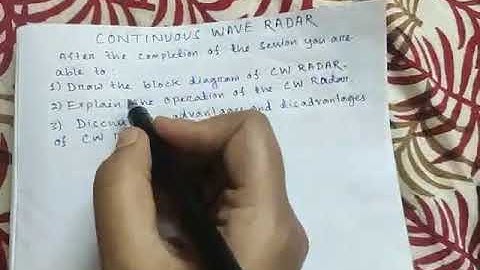 CONTINUOUS WAVE RADAR
After the completion of the session you are
able to :
1) Draw the block diagram of CW RADAR.
2) Explain the operation of the CW Radar.
3) advantages and disadvantages
of CW